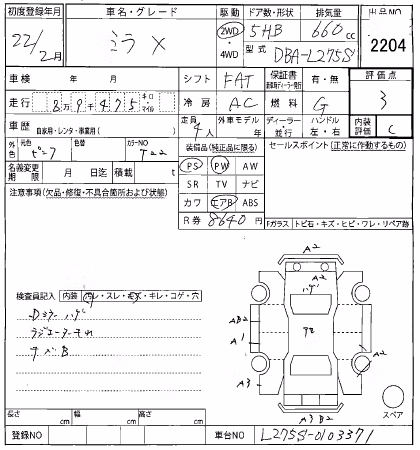 初度登録年月 車名・グレード 駆動 ドア数・形状 排気量 出品NO
22/2月 ミラ X 2WD・4WD 5HB 660cc 2204
型式 DBA-L275S
車検 年 月 シフト FAT 保証書 有・無 評価点
走行 8万9千475 キロ マイル 冷房 AC 燃料 G 3
車歴 自家用・レンタ・事業用( ) 定員 4人 外車モデル 年 ディーラー・並行 ハンドル 左・右 内装評価 C
外色 元色 色替 カラーNO 装備品(純正品に限る) セールスポイント(正常に作動するもの)
名義変更期限 月 日迄 積載 t PS PW AW
注意事項(欠品・修復・不具合箇所および状態) SR TV ナビ
カワ エアB ABS
R券 8640円 Fガラス トビ石・キズ・ヒビ・ワレ・リペア跡
A2
検査員記入 内装 汚レ・スレ・キズ・キレ・コゲ・穴
Dミラー ハゲ
ラジエーターモレ
ナベB
AB2
A1
A2
A2
A3
A3 B2
スペア
長さ cm 幅 cm 高さ cm
登録NO 車台NO L275S-0103371